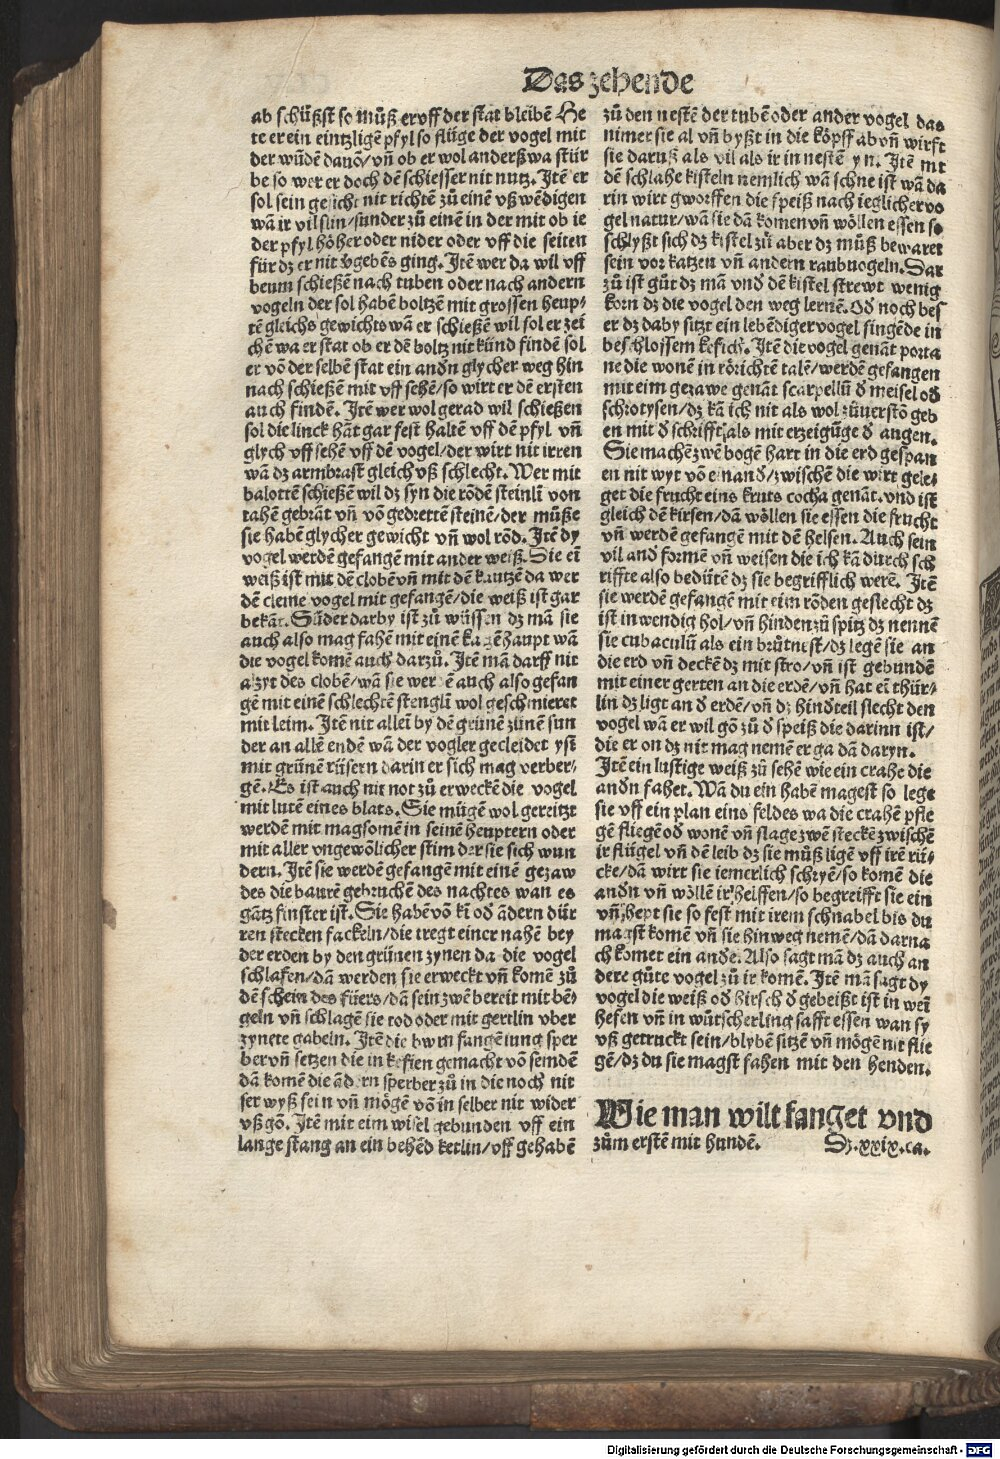 Das zehende
ab schüßst so muͦß er vff der stat bleibē He
te er ein eintzligē pfyl so flüge der vogel mit
der wūdē danō/vn̄ ob er wol anderßwa stür
be so wer er doch dē schiesser nit nutz. Itē er
sol sein gesicht nit richtē zuͦ einē vß wēdigen
wā ir vil sin/sunder zuͦ einē in der mit ob ie
der pfyl höher oder nider oder vff die seiten
für dz er nit v̄gebēs ging. Itē wer da wil vff
beum schießē nach tuben oder nach andern
vogeln der sol habē boltzē mit grossen heup⸗
tē gleichs gewichts wā er schießē wil sol er zei
chē wa er stat ob er dē boltz nit künd findē sol
er vō der selbē stat ein andn̄ glycher weg hin
nach schießē mit vff sehē/so wirt er dē ersten
auch findē. Itē wer wol gerad wil schießen
sol die linck hāt gar fest haltē vff dē pfyl vn̄
glych vff sehē vff dē vogel/der wirt nit irren
wā dz armbrast gleich vß schlecht. Wer mit
balottē schießē wil dz syn die rōdē steinlī von
tahē gebrāt vn̄ vō gedrettē steinē/der müße
sie habē glycher gewicht vn̄ wol rōd. Itē dy
vogel werdē gefangē mit ander weiß. Die eī
weiß ist mit dē clobē vn̄ mit dē kautzē da wer
dē cleine vogel mit gefangē/die weiß ist gar
bekāt. Sūder darby ist zuͦ wüssen dz mā sie
auch also mag fahē mit einē kazēhaupt wā
die vogel komē auch darzuͦ. Itē mā darff nit
alzyt des clobē/wā sie werdē auch also gefan
gē mit einē schlechtē stenglī wol geschmieret
mit leim. Itē nit alleī by dē grünē zünē sun
der an allē endē wā der vogler gecleidet yst
mit grünē rüsern darin er sich mag verber⸗
gē. Es ist auch nit not zuͦ erweckē die vogel
mit lutē eines blats. Sie mügē wol gereitzt
werdē mit magsomē in seinē heuptern oder
mit aller vngewōlicher stim der sie sich wun
dern. Itē sie werdē gefangē mit einē gezaw
des die baurē gebruchē des nachtes wan es
gātz finster ist. Sie habē vō kī od̄ ādern dür
ren stecken fackeln/die tregt einer nahē bey
der erden by den grünen zynen da die vogel
schlafen/dā werden sie erweckt vn̄ komē zuͦ
dē schein des füers/dā sein zwē bereit mit bē⸗
geln vn̄ schlagē sie tod oder mit gertlin vber
zynete gabeln. Itē die bwrn fangē iung sper
ber vn̄ setzen die in kefien gemacht vō semdē
dā komē die ādern sperber zuͦ in die noch nit
ser wyß sein vn̄ mögē vō in selber nit wider
vß gō. Itē mit eim wisel gebunden vff ein
lange stang an ein behēd ketlin/vff gehabē
zuͦ den nestē der tubē oder ander vogel das
nimet sie al vn̄ byßt in die köpff ab vn̄ wirft
sie daruß als vil als ir in nestē syn. Itē mit
dē schlahe kisteln nemlich wā schne ist wā da
rin wirt gworffen die speiß nach ieglicher vo
gel natur/wā sie dā komen vn̄ wöllen essen so
schlyßt sich dz kistel zuͦ aber dz muͦß bewaret
sein vor katzen vn̄ andern raubuogeln. Dar
zuͦ ist guͦt dz mā vnd̄ dē kistel strewt wenig
korn dz die vogel den weg lernē. Od̄ noch bes
er dz daby sitzt ein lebēdiger vogel singēde in
beschlossem kefich. Itē die vogel genāt porta
ne die wonē in rörichtē talē/werdē gefangen
mit eim gezawe genāt scarpellū d̄ meisel od̄
schrotysen/dz kā ich nit als wol zuͦuerstō geb
en mit d̄ schrifft/als mit erzeigūge d̄ augen.
Sie machē zwē bogē hart in die erd gespan
en nit wyt vō enand̄/zwischē die wirt gele⸗
get die frucht eins kruts cocha genāt. vnd ist
gleich dē kirsen/dā wöllen sie essen die frucht
vn̄ werdē gefangē mit dē helsen. Auch sein
vil and̄ formē vn̄ weisen die ich kā durch sch
riffte also bedütē dz sie begrifflich werē. Itē
sie werdē gefangē mit eim rōden geflecht dz
ist inwendig hol/vn̄ hinden zuͦ spitz dz nennē
sie cubaculū als ein brütnest/dz legē sie an
die erd vn̄ deckē dz mit stro/vn̄ ist gebundē
mit einer gerten an die erdē/vn̄ hat eī thür⸗
lin dz ligt an d̄ erdē/vn̄ dz hind̄teil slecht den
vogel wā er wil gō zuͦ d̄ speiß die darinn ist/
die er on dz nit mag nemē er ga dā daryn.
Itē ein lustige weiß zuͦ sehē wie ein crahe die
andn̄ fahet. Wā du ein habē magest so lege
sie vff ein plan eins feldes wa die crahē pfle
gē fliegē od̄ wonē vn̄ slage zwē steckē zwischē
ir flügel vn̄ dē leib dz sie muͦß ligē vff irē rü⸗
cke/dā wirt sie iemerlich schryē/so komē die
andn̄ vn̄ wöllē ir helffen/so begreifft sie ein
vn̄ hept sie so fest mit irem schnabel bis du
magst komē vn̄ sie hinweg nemē/dā darna
ch komet ein ande. Also sagt mā dz auch an
dere guͦte vogel zuͦ ir komē. Itē mā sagt dy
vogel die weiß od̄ hirsch d̄ gebeißt ist in weī
hefen vn̄ in wütscherling safft essen wan sy
vß getruckt sein/blybē sitzē vn̄ mögē nit flie
gē/dz du sie magst fahen mit den henden.
Wie man wilt fanget vnd
zuͦm erstē mit hundē. Dz .xxix.ca.
Digitalisierung gefördert durch die Deutsche Forschungsgemeinschaft - DFG